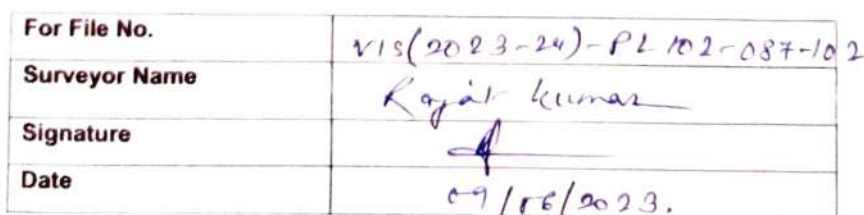 For File No. VIS(2023-24)-PL102-087-102
Surveyor Name Rajat Kumar
Signature
Date 09/06/2023.